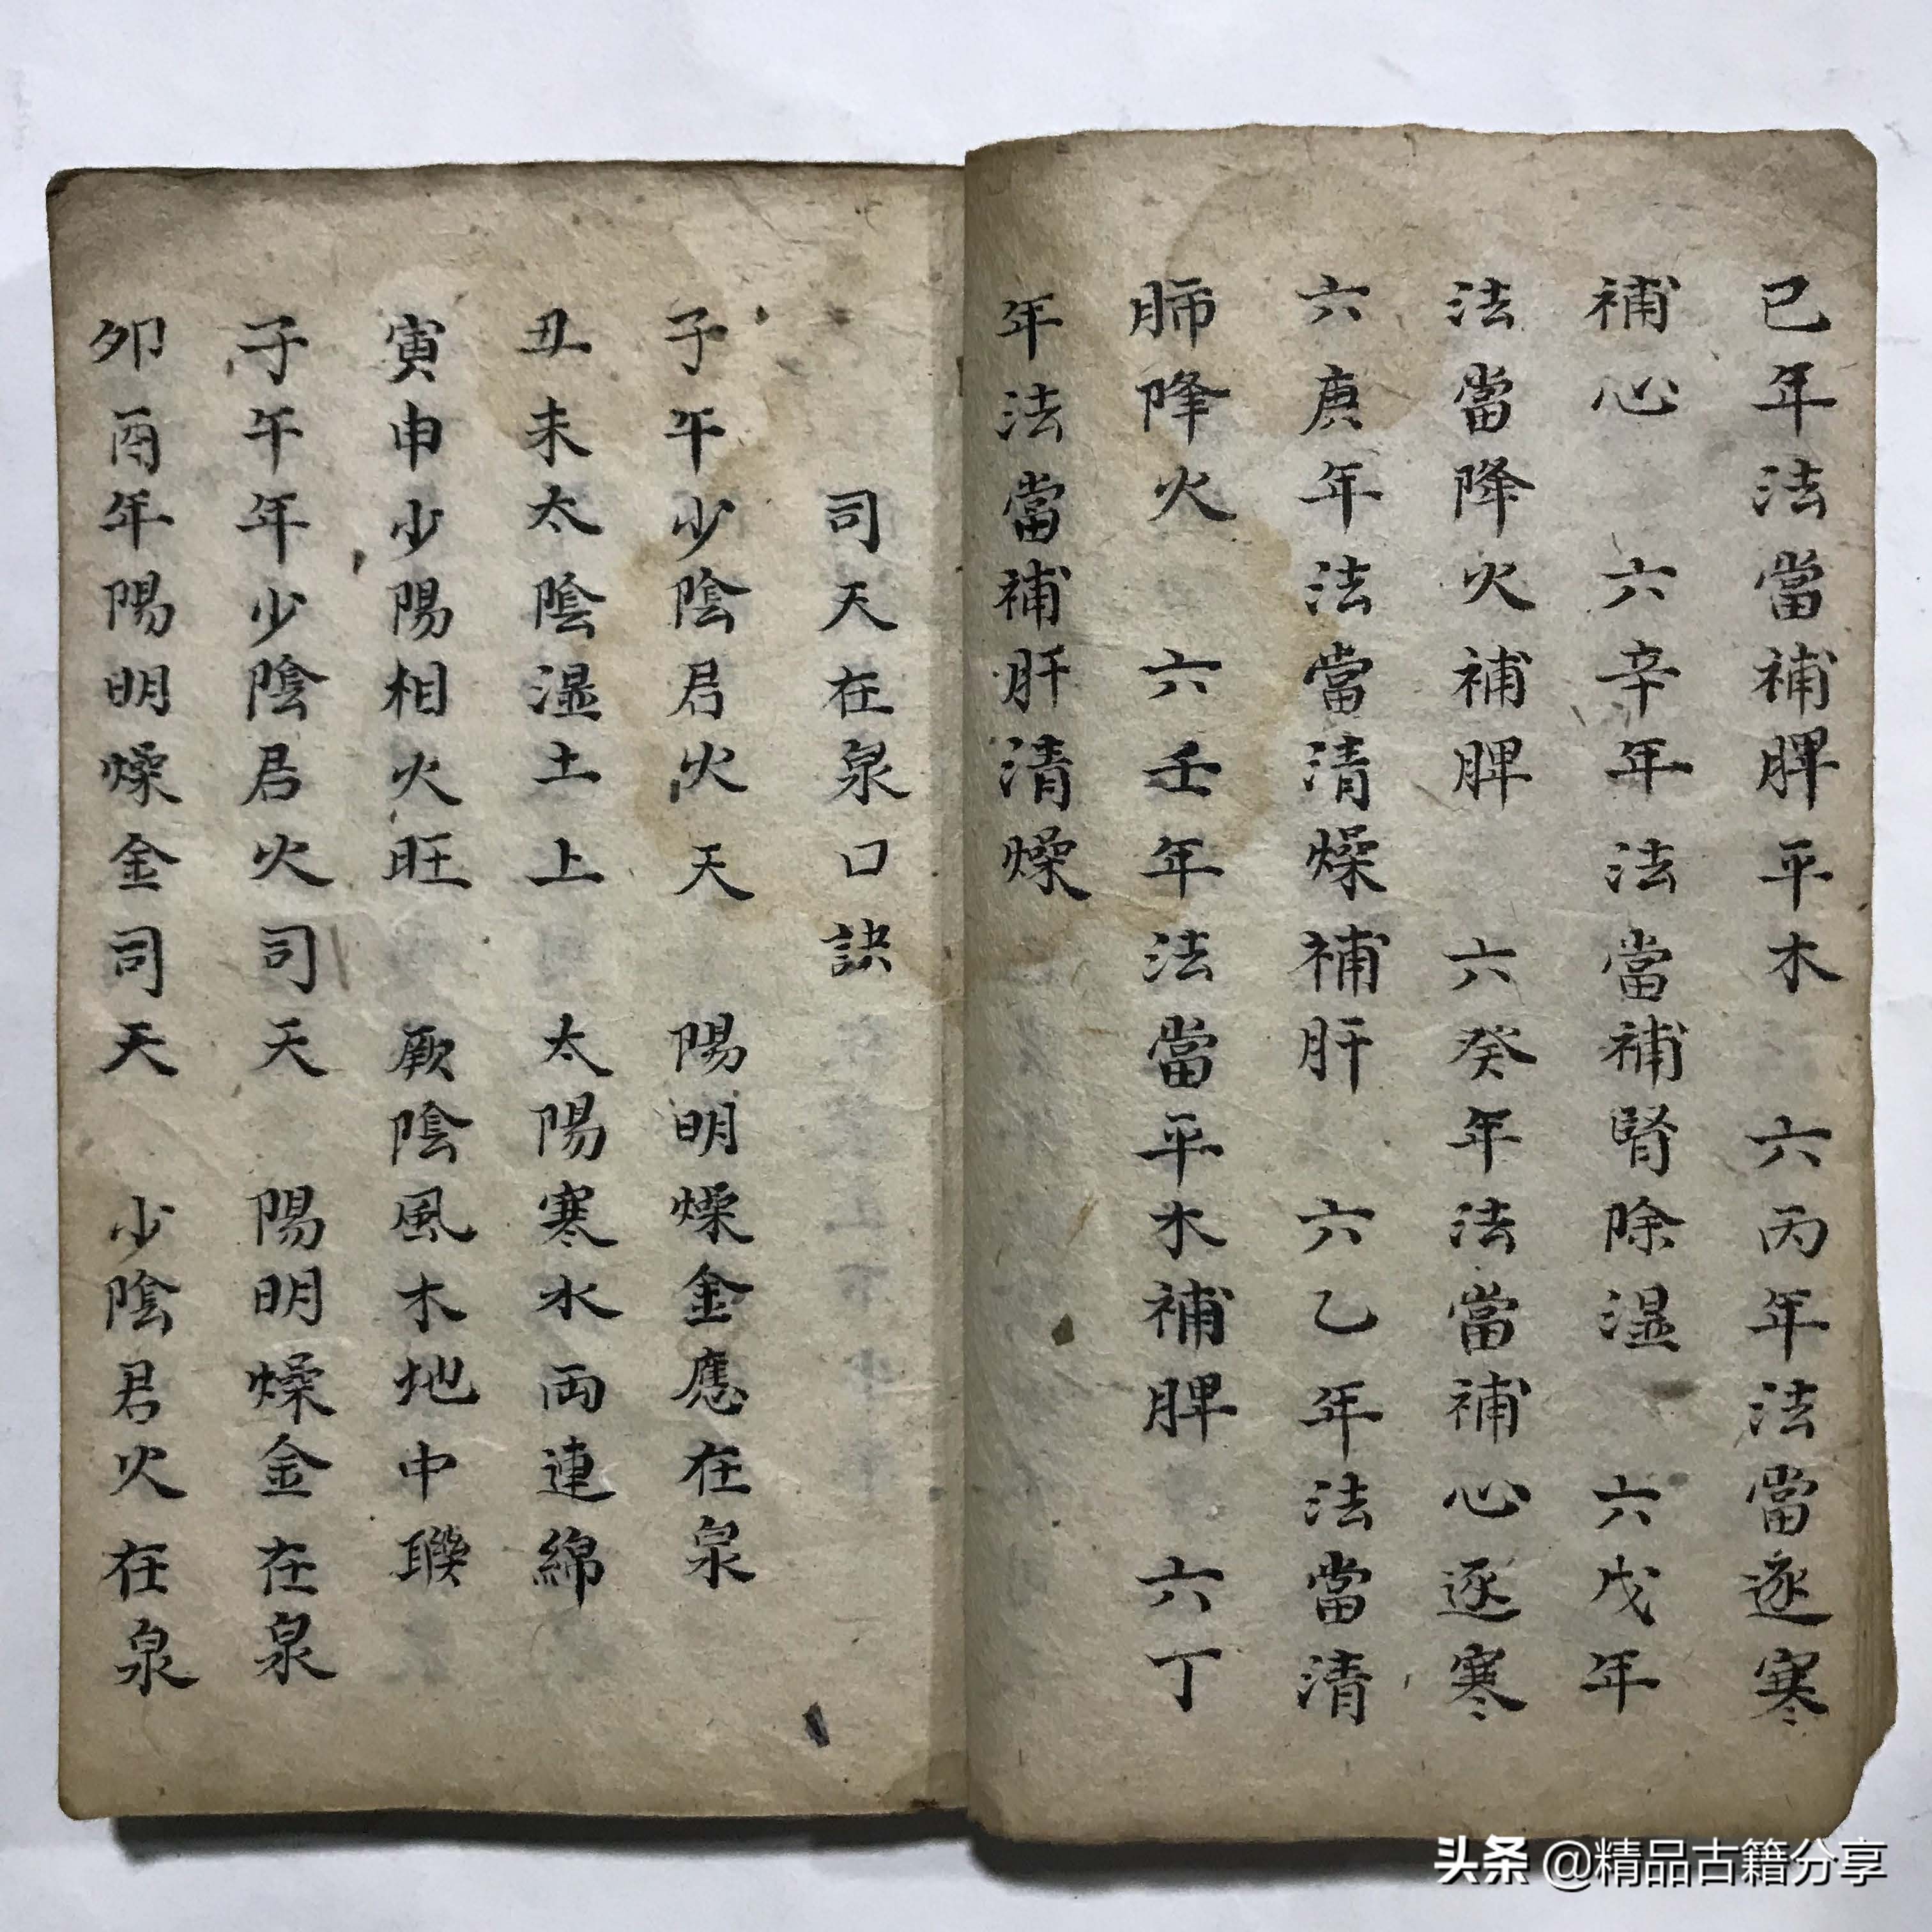 已年法當補脾平木　六丙年法當逐寒
補心　六辛年法當補腎除湿　六戊年
法當降火補脾　六癸年法當補心逐寒
六庚年法當清燥補肝　六乙年法當清
肺降火　六壬年法當平木補脾　六丁
年法當補肝清燥
司天在泉口訣
子午少陰君火天　陽明燥金應在泉
丑未太陰湿土上　太陽寒水両連綿
寅申少陽相火旺　厥陰風木地中聫
子午年少陰君火司天　陽明燥金在泉
夘酉年陽明燥金司天　少陰君火在泉
头条 @精品古籍分享